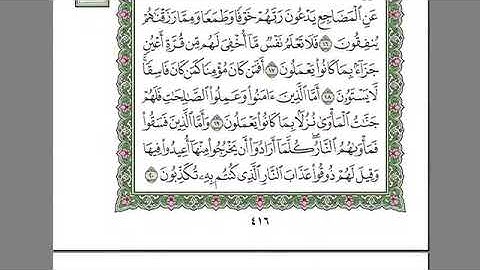 عَنِ ٱلْمَضَاجِعِ يَدْعُونَ رَبَّهُمْ خَوْفًا وَطَمَعًا وَمِمَّا رَزَقْنَٰهُمْ
يُنفِقُونَ ١٦ فَلَا تَعْلَمُ نَفْسٌ مَّآ أُخْفِىَ لَهُم مِّن قُرَّةِ أَعْيُنٍ
جَزَآءًۢ بِمَا كَانُوا۟ يَعْمَلُونَ ١٧ أَفَمَن كَانَ مُؤْمِنًا كَمَن كَانَ فَاسِقًا ۚ
لَّا يَسْتَوُۥنَ ١٨ أَمَّا ٱلَّذِينَ ءَامَنُوا۟ وَعَمِلُوا۟ ٱلصَّٰلِحَٰتِ فَلَهُمْ
جَنَّٰتُ ٱلْمَأْوَىٰ نُزُلًۢا بِمَا كَانُوا۟ يَعْمَلُونَ ١٩ وَأَمَّا ٱلَّذِينَ فَسَقُوا۟
فَمَأْوَىٰهُمُ ٱلنَّارُ ۖ كُلَّمَآ أَرَادُوٓا۟ أَن يَخْرُجُوا۟ مِنْهَآ أُعِيدُوا۟ فِيهَا
وَقِيلَ لَهُمْ ذُوقُوا۟ عَذَابَ ٱلنَّارِ ٱلَّذِى كُنتُم بِهِۦ تُكَذِّبُونَ ٢٠
٤١٦